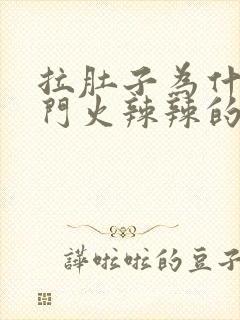 拉肚子為什
門火辣辣的
譁啦啦的豆子